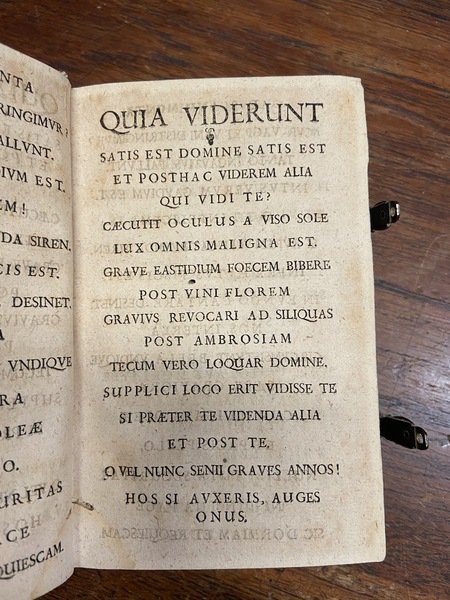 NTA
RINGIMVR?
ALLVNT.
DIVM EST.
EM!
DA SIREN,
CIS EST.
DESINET,
A
VNDIQVE
RA
OLEÆ
O.
URITAS
RCE
QUIESCAM.
QUIA VIDERUNT
SATIS EST DOMINE SATIS EST
ET POSTHAC VIDEREM ALIA
QUI VIDI TE?
CÆCUTIT OCULUS A VISO SOLE
LUX OMNIS MALIGNA EST.
GRAVE EASTIDIUM FOECEM BIBERE
POST VINI FLOREM
GRAVIVS REVOCARI AD SILIQUAS
POST AMBROSIAM
TECUM VERO LOQUAR DOMINE,
SUPPLICI LOCO ERIT VIDISSE TE
SI PRÆTER TE VIDENDA ALIA
ET POST TE,
O VEL NUNC SENII GRAVES ANNOS!
HOS SI AVXERIS, AUGES
ONUS,